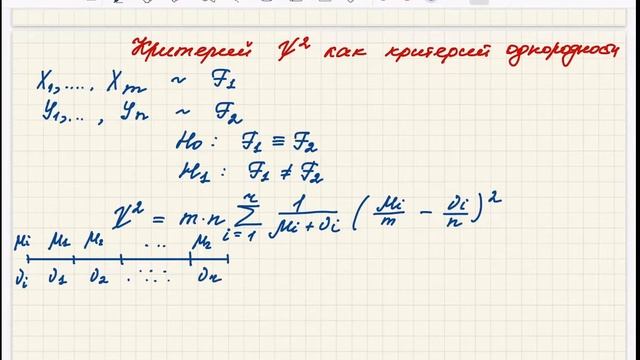 Критерий χ² как критерий однородности
X₁,...., Xₘ ~ F₁
Y₁,..., Yₙ ~ F₂
H₀: F₁ ≡ F₂
H₁: F₁ ≠ F₂
χ² = m·n ∑ᵢ₌₁ʳ 1/(μᵢ+νᵢ) (μᵢ/m − νᵢ/n)²
μᵢ μ₁ μ₂ ... μᵣ
νᵢ ν₁ ν₂ ..... νᵣ